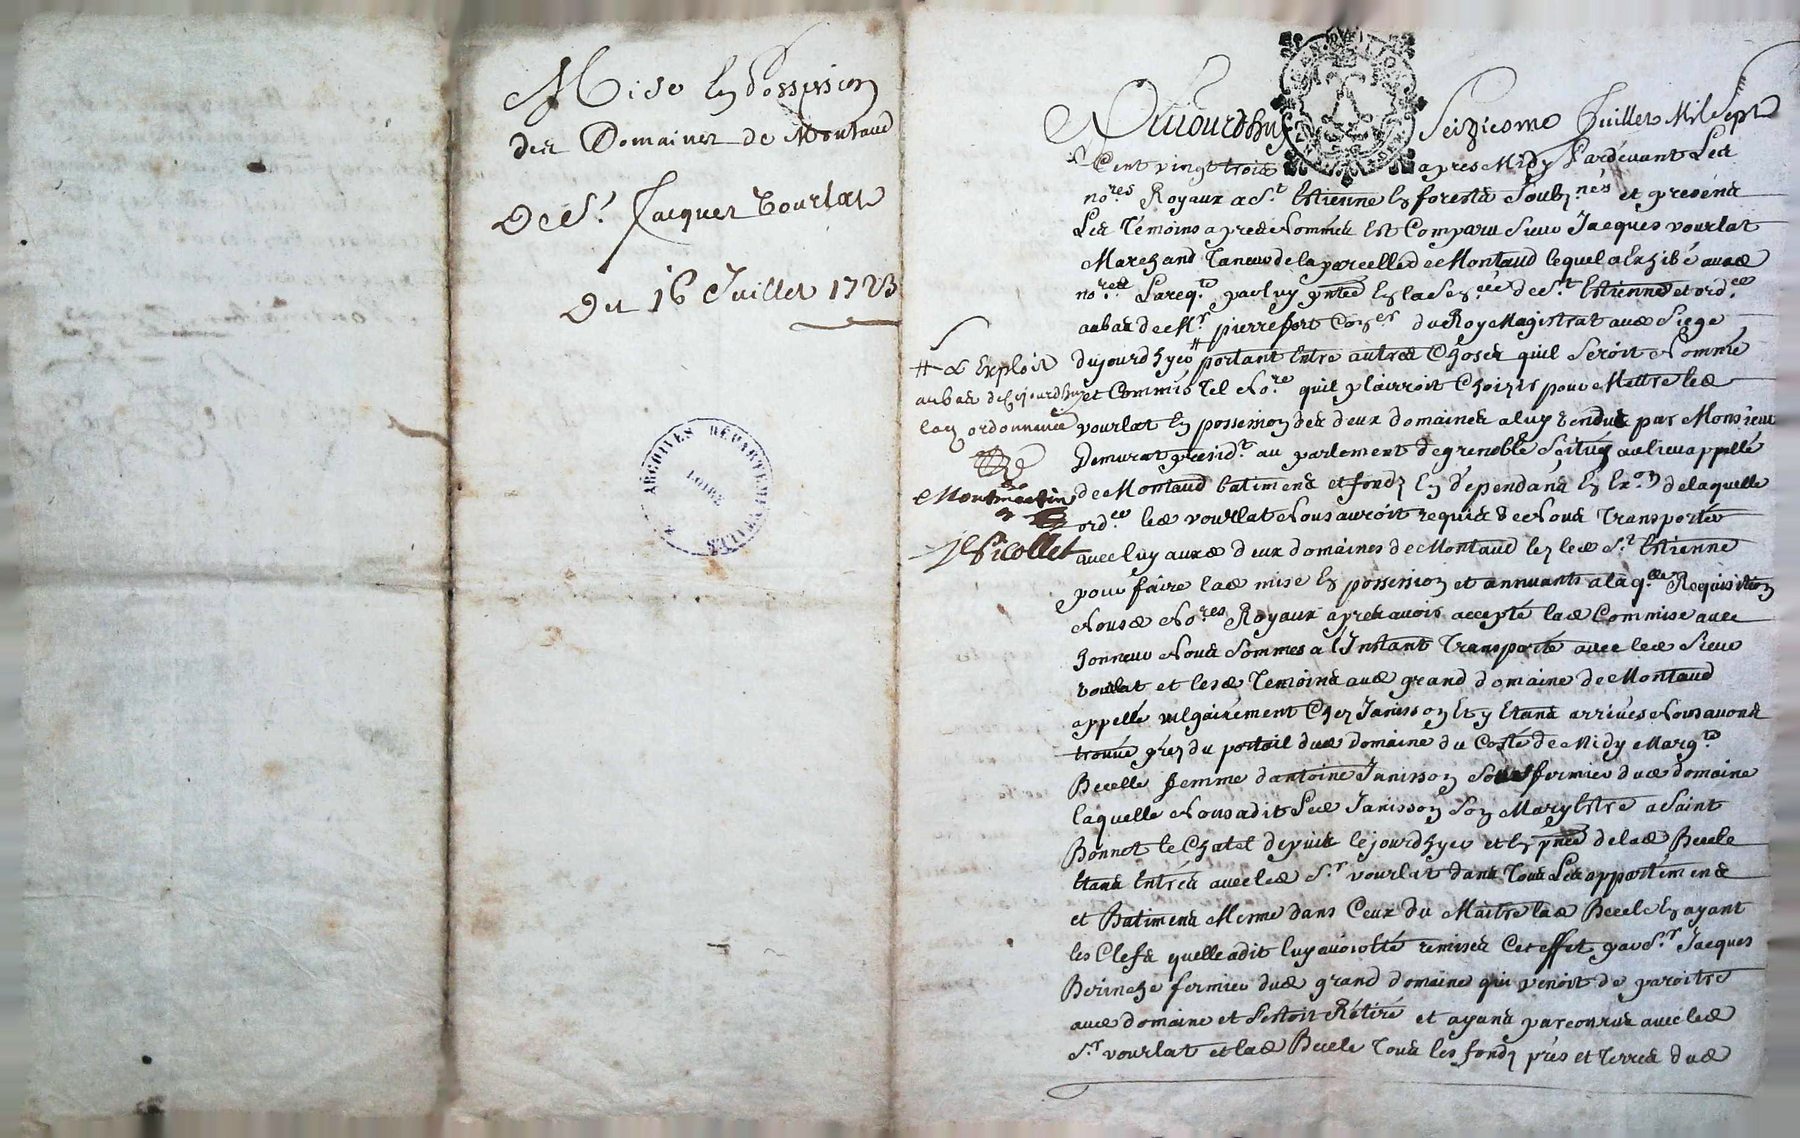 Mise En Possession
des Domaines de Montaud
De Sr. Jacques Vourlat
Du 16 Juillet 1723
ARCHIVES DÉPARTEMENTALES
LOIRE
Aujourdhuy Seizieme Juillet Mil Sept
Cent vingt trois apres Midy Pardevant Les
nores Royaux a St Estienne En forests Soubznés et presens
Les Témoins apres Nommés Est Comparu Sieur Jacques vourlat
Marchand Taneur de la parcelle de Montaud lequel a Exhibé aux
nores La reqte par luy pntée En la de St Estienne et ordce
au bas de Mr pierre fort Conser du Roy Magistrat au Siege
du jourdhyer # portant Entre autres Choses quil Seroit Nommé
et Commis Tel Nore quil plairroit Choisir pour Mettre led
vourlat En possession des deux domaines a luy Vendus par Monsieur
Demurat presidt au parlement de grenoble Scitués au lieu appellé
de Montaud batimens et fondz En dépendans En Exon de laquelle
ordce led vourlat Nous auroit requis de Nous Transporter
avec luy auxd deux domaines de Montaud lez led St Estienne
pour faire lad mise En possession et annuants a laqlle Requisition
Nousd Nores Royaux apres avoir accepté lad Commise avec
honneur Nous Sommes a l'Instant Transporté avec led Sieur
vourlat et lesd Temoins aud grand domaine de Montaud
appellé vulgairement Chez Janisson Et y Etans arrivés Nous avons
trouvé prez du portail dud domaine du Costé de Midy Margte
Becelle femme dantoine Janisson Sousfermier dud domaine
laquelle Nous a dit Led Janisson Son Mary Estre a Saint
Bonnet le Chatel depuis le jour dhyer et En pnce de lad Becele
Etans Entrés avec led Sr vourlat dans Tous Les appartemens
et Batimens Mesme dans Ceux du Maitre lad Becele En ayant
les Clefs quelle a dit luy avoir Esté remises a Cet effet par Sr Jacques
fermier dud grand domaine qui venoit de paroitre
aud domaine et Sestoit Rétiré et ayans parcourus avec led
Sr vourlat et lad Becele Tous les fondz prés et Terres dud
# & Exploit
au bas de ce jourdhuy
Lad ordonnance
Montmartin
Picollet